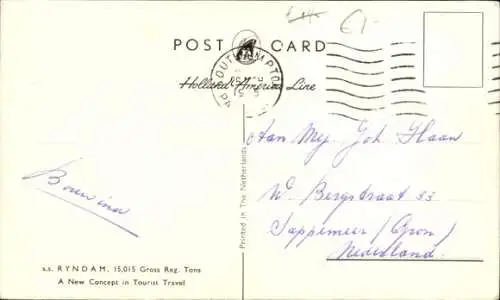 £1-
POST CARD
SOUTHAMPTON
Holland-America Line
Aan Mej. Joh. Haan
W. Bergstraat 33
Sappemeer (Gron)
Nederland.
Bouwina
Printed in The Netherlands
s.s. RYNDAM, 15,015 Gross Reg. Tons
A New Concept in Tourist Travel